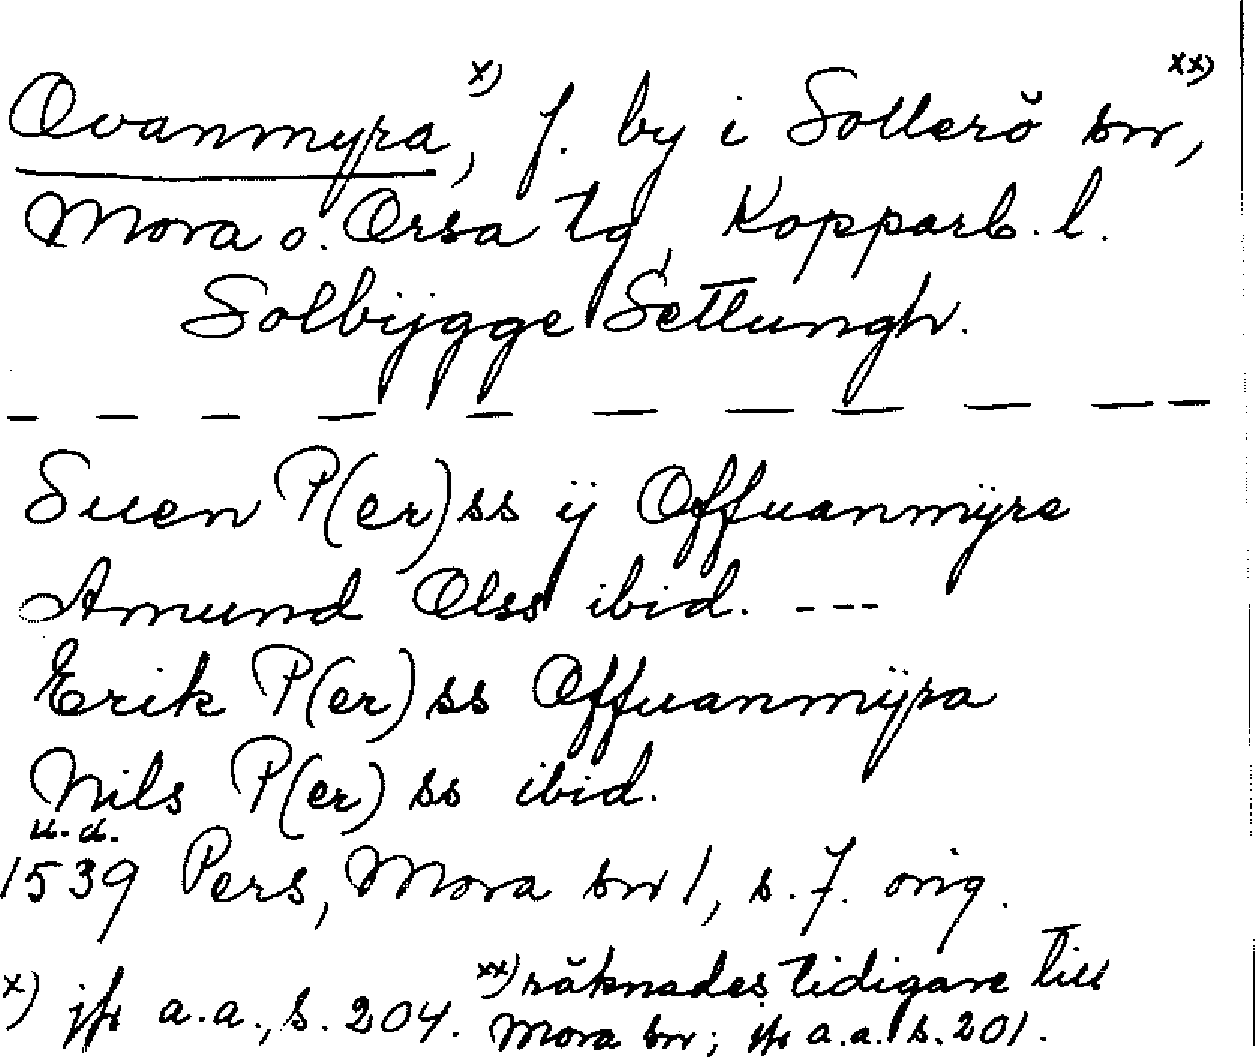 Ovanmyra,x) f. by i Sollerö sn,xx)
Mora o. Orsa tg, Kopparb. l.
Solbijgge Settungh.
— — — — — — — — — — —
Suen P(er)ss ij Offuanmÿre
Amund Olss ibid. ---
Erik P(er)ss Offuanmÿra
Nils P(er)ss ibid.
u.d.
1539 Pers, Mora sn 1, s. 7. orig.
x) jfr a.a., s. 204.
xx) räknades tidigare till
Mora sn; jfr a.a. s. 201.